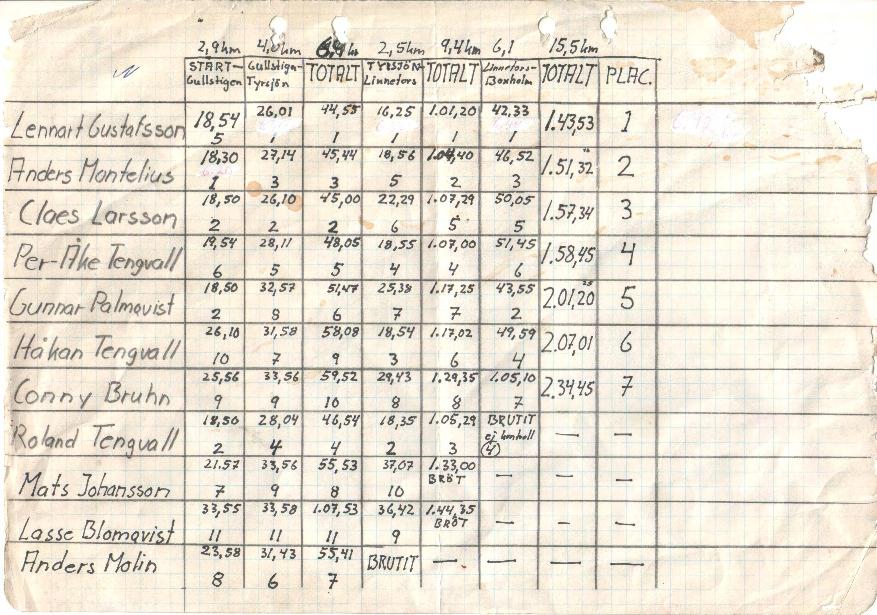 2,9km 4,0km 6,9km 2,5km 9,4km 6,1 15,5km
START- Gullstiga- TOTALT TYRSJÖN- TOTALT Linnefors- TOTALT PLAC.
Gullstigen Tyrsjön Linnefors Boxholm
Lennart Gustafsson 18,54 26,01 44,55 16,25 1.01,20 42,33 1.43,53 1
5 1 1 1 1 1
Anders Montelius 18,30 27,14 45,44 18,56 1.04,40 46,52 1.51,32 2
1 3 3 5 2 3
Claes Larsson 18,50 26,10 45,00 22,29 1.07,29 50,05 1.57,34 3
2 2 2 6 5 5
Per-Åke Tengvall 19,54 28,11 48,05 18,55 1.07,00 51,45 1.58,45 4
6 5 5 4 4 6
Gunnar Palmqvist 18,50 32,57 51,47 25,38 1.17,25 43,55 2.01,20 5
2 8 6 7 7 2
Håkan Tengvall 26,10 31,58 58,08 18,54 1.17,02 49,59 2.07,01 6
10 7 9 3 6 4
Conny Bruhn 25,56 33,56 59,52 29,43 1.29,35 1.05,10 2.34,45 7
9 9 10 8 8 7
Roland Tengvall 18,50 28,04 46,54 18,35 1.05,29 BRUTIT — —
ej kontroll
2 4 4 2 3 4
Mats Johansson 21.57 33,56 55,53 37,07 1.33,00 — — —
BRÖT
7 9 8 10
Lasse Blomqvist 33,55 33,58 1.07,53 36,42 1.44,35 — — —
BRÖT
11 11 11 9
Anders Molin 23,58 31,43 55,41 BRUTIT — — — —
8 6 7